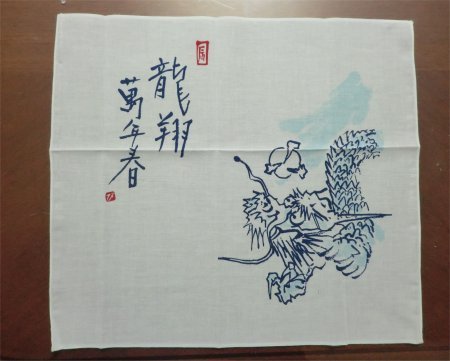 龍翔
萬年春